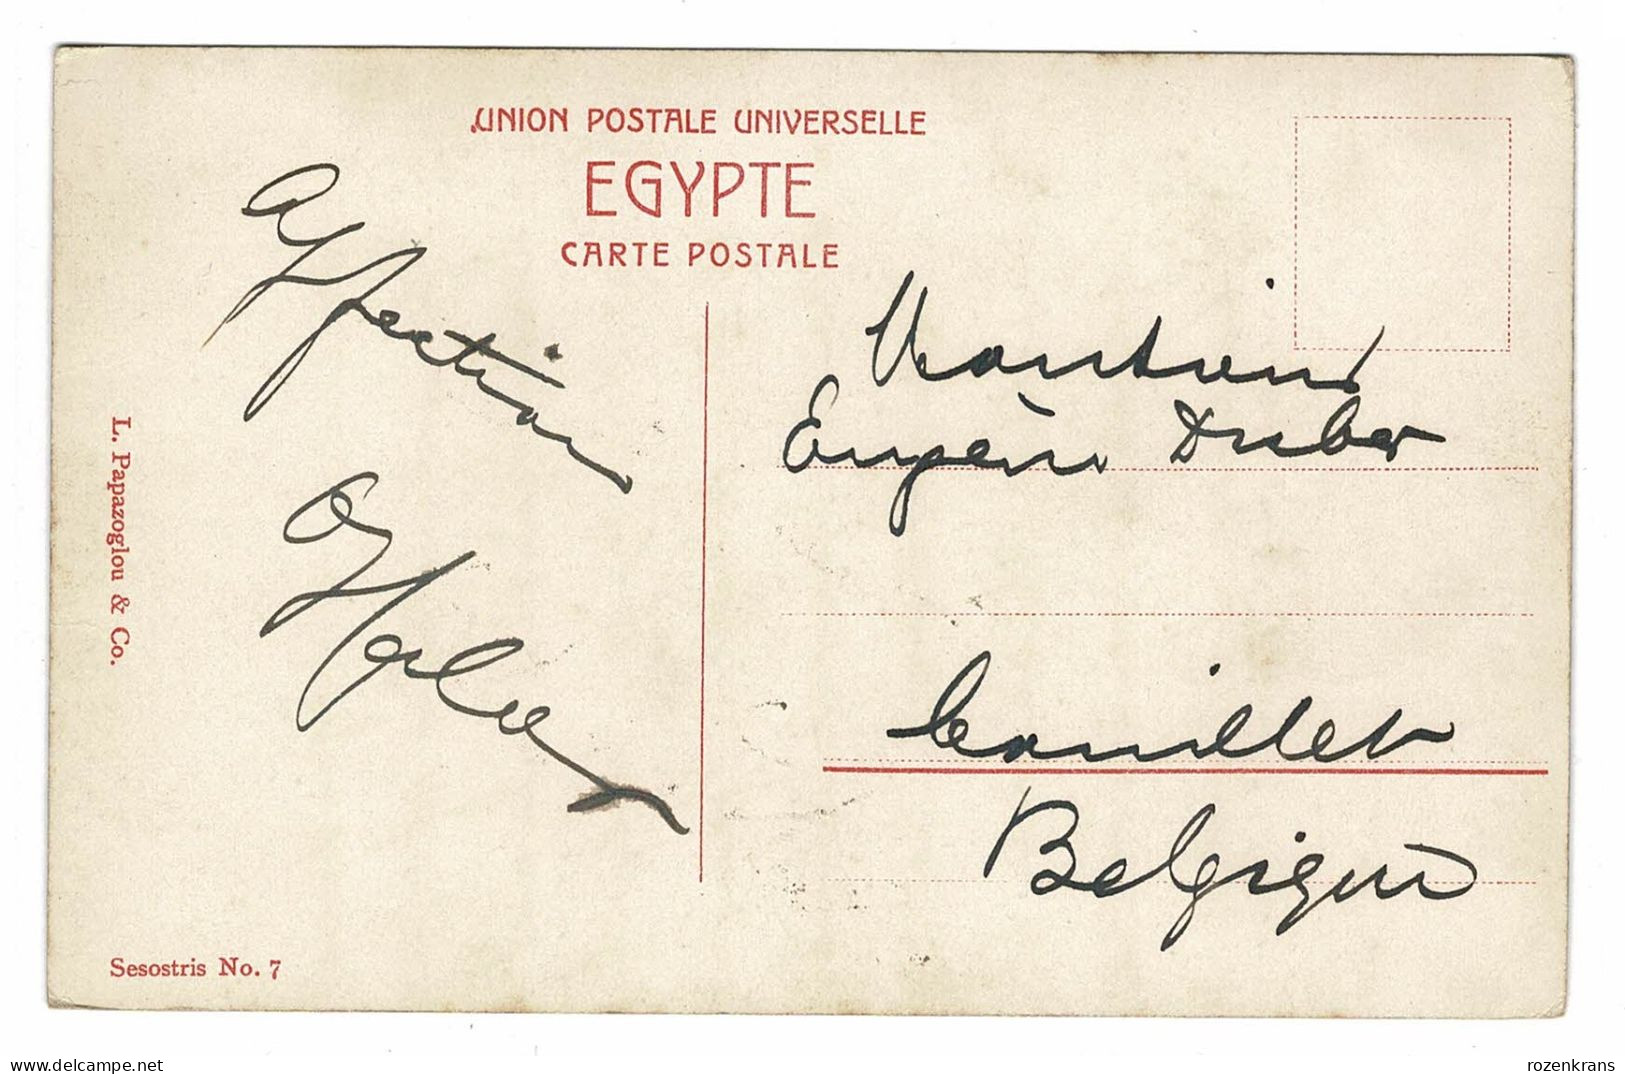 UNION POSTALE UNIVERSELLE
EGYPTE
CARTE POSTALE
Affection
Monsieur
Eugène
Couillet
Belgique
L. Papazoglou & Co.
Sesostris No. 7
delcampe.net
rozenkrans